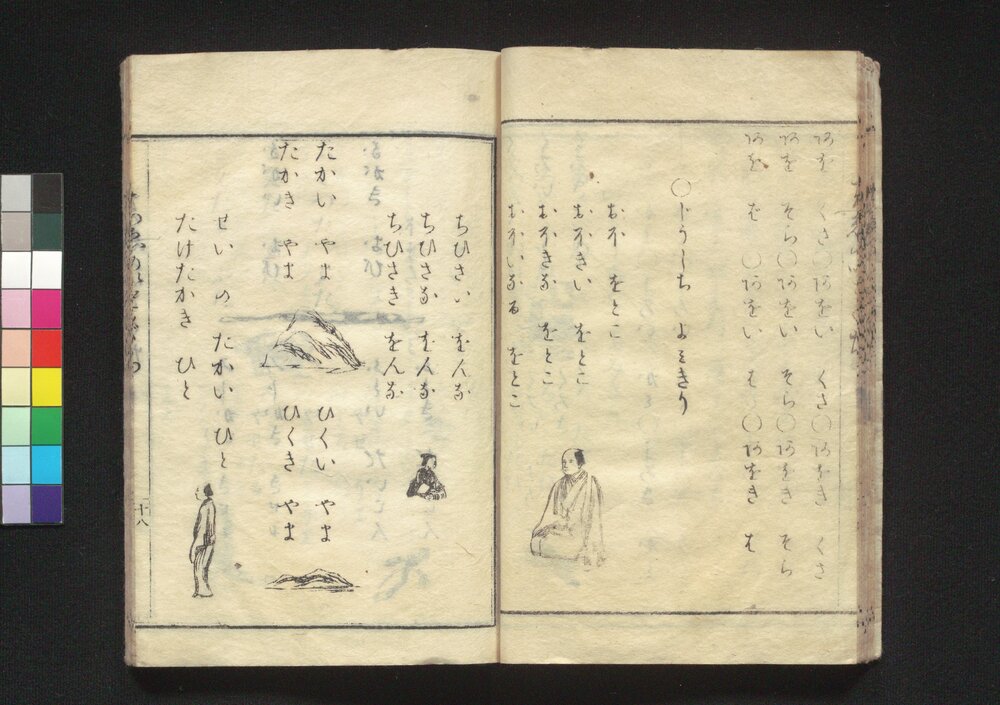 あを くさ〇あをい くさ〇あをき くさ
あを そら〇あをい そら〇あをき そら
あを は〇あをい は〇あをき は
〇じうしち よみきり
おほ をとこ
おほきい をとこ
おほきな をとこ
おほいなる をとこ
ちひさい をんな
ちひさな をんな
ちひさき をんな
たかい やま ひくい やま
たかき やま ひくき やま
せい の たかい ひと
たけたかき ひと
十八